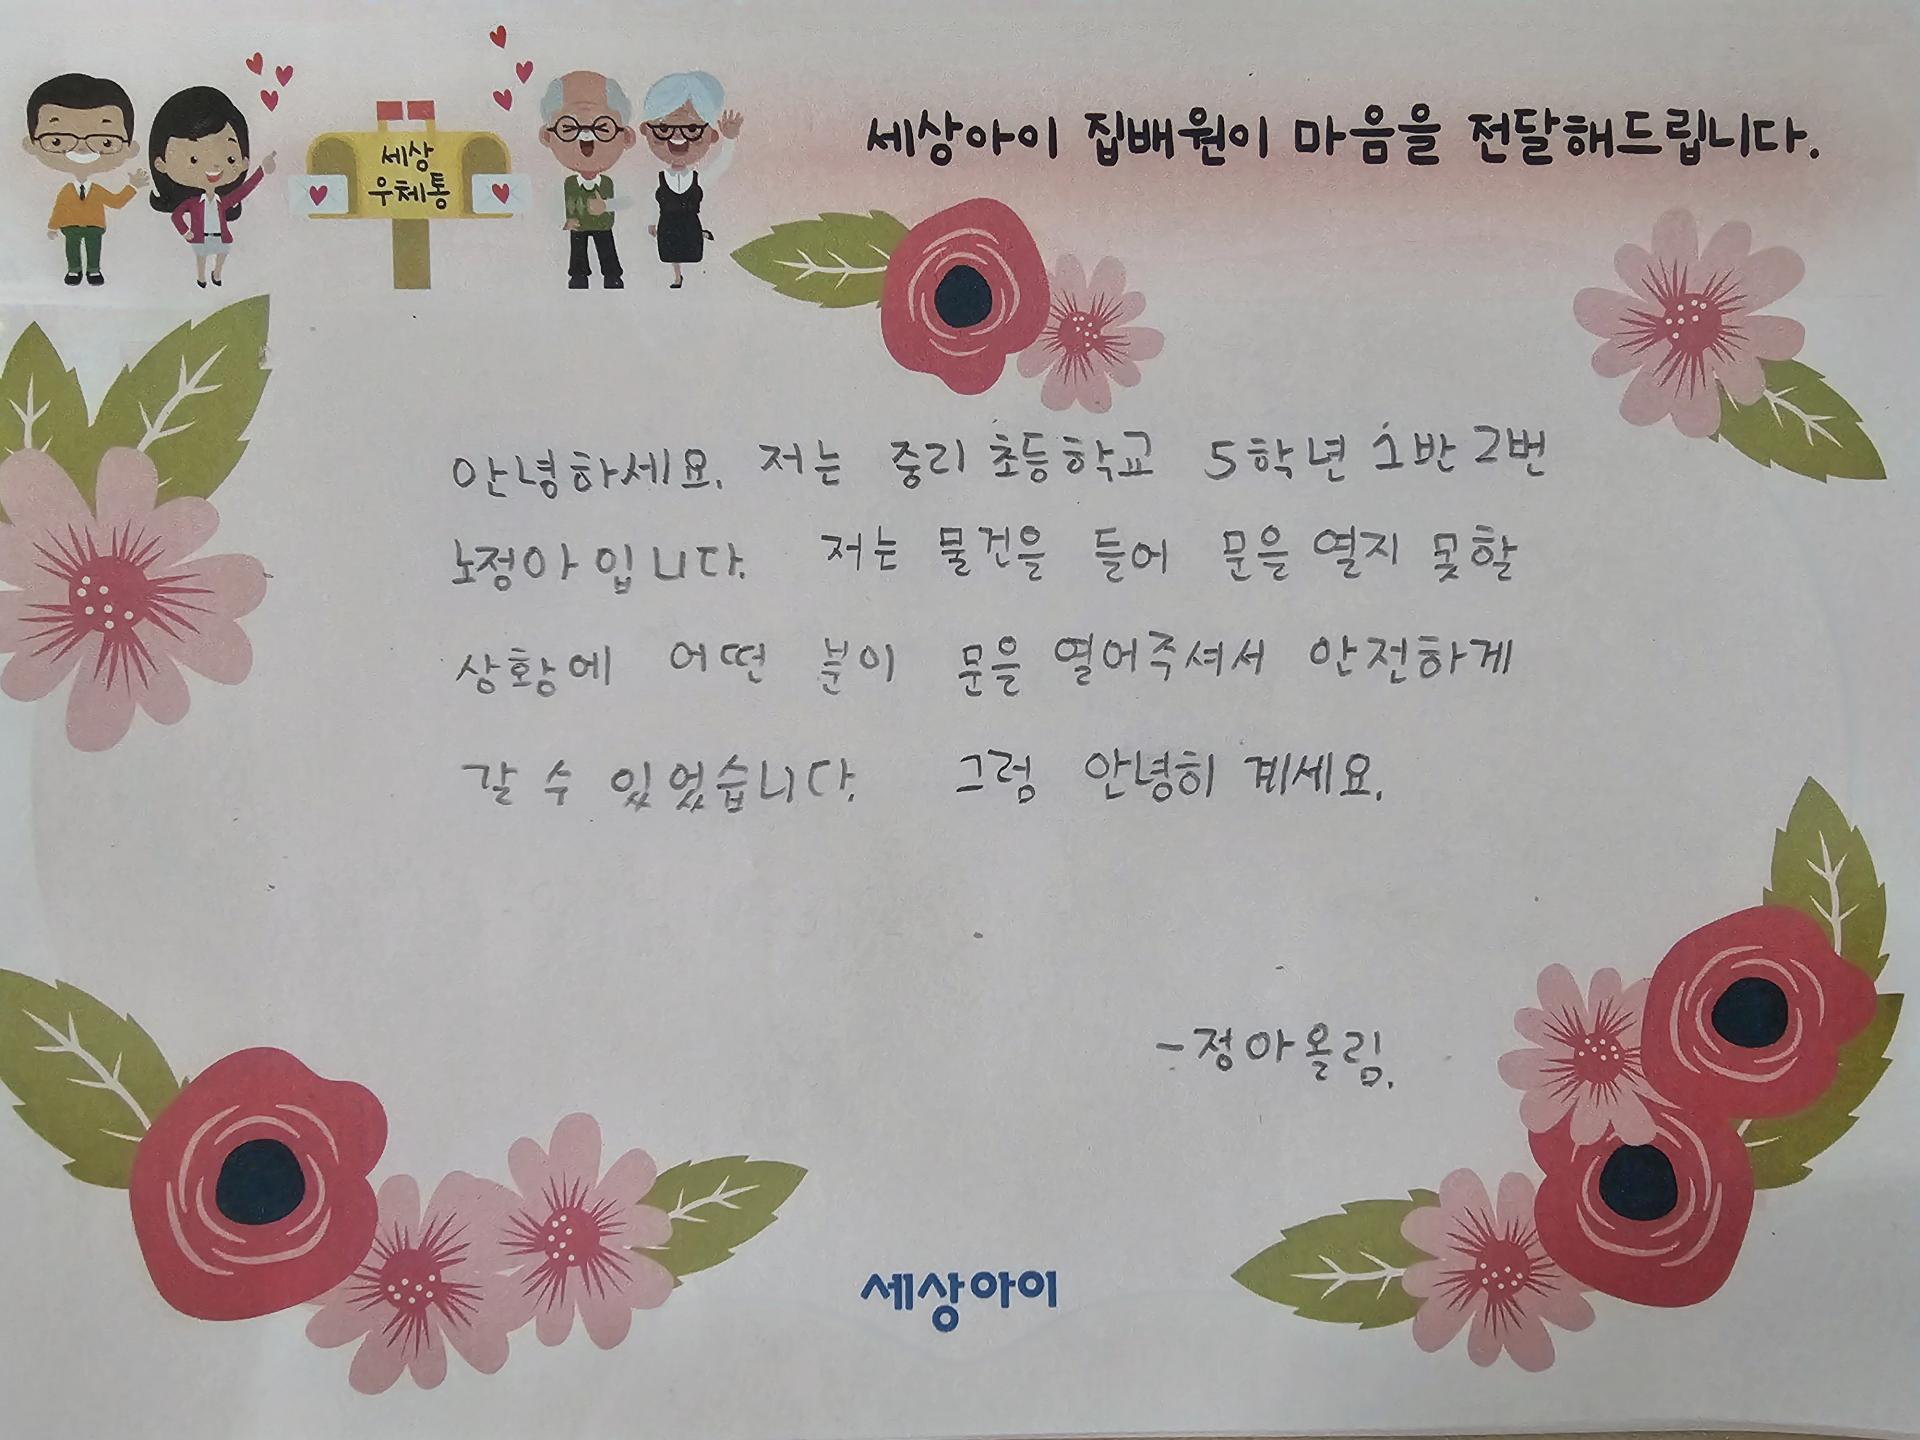 세상아이 집배원이 마음을 전달해드립니다.
세상
우체통
안녕하세요. 저는 중리 초등학교 5학년 1반 2번
노정아 입니다. 저는 물건을 들어 문을 열지 못할
상황에 어떤 분이 문을 열어주셔서 안전하게
갈 수 있었습니다. 그럼 안녕히 계세요.
-정아올림.
세상아이